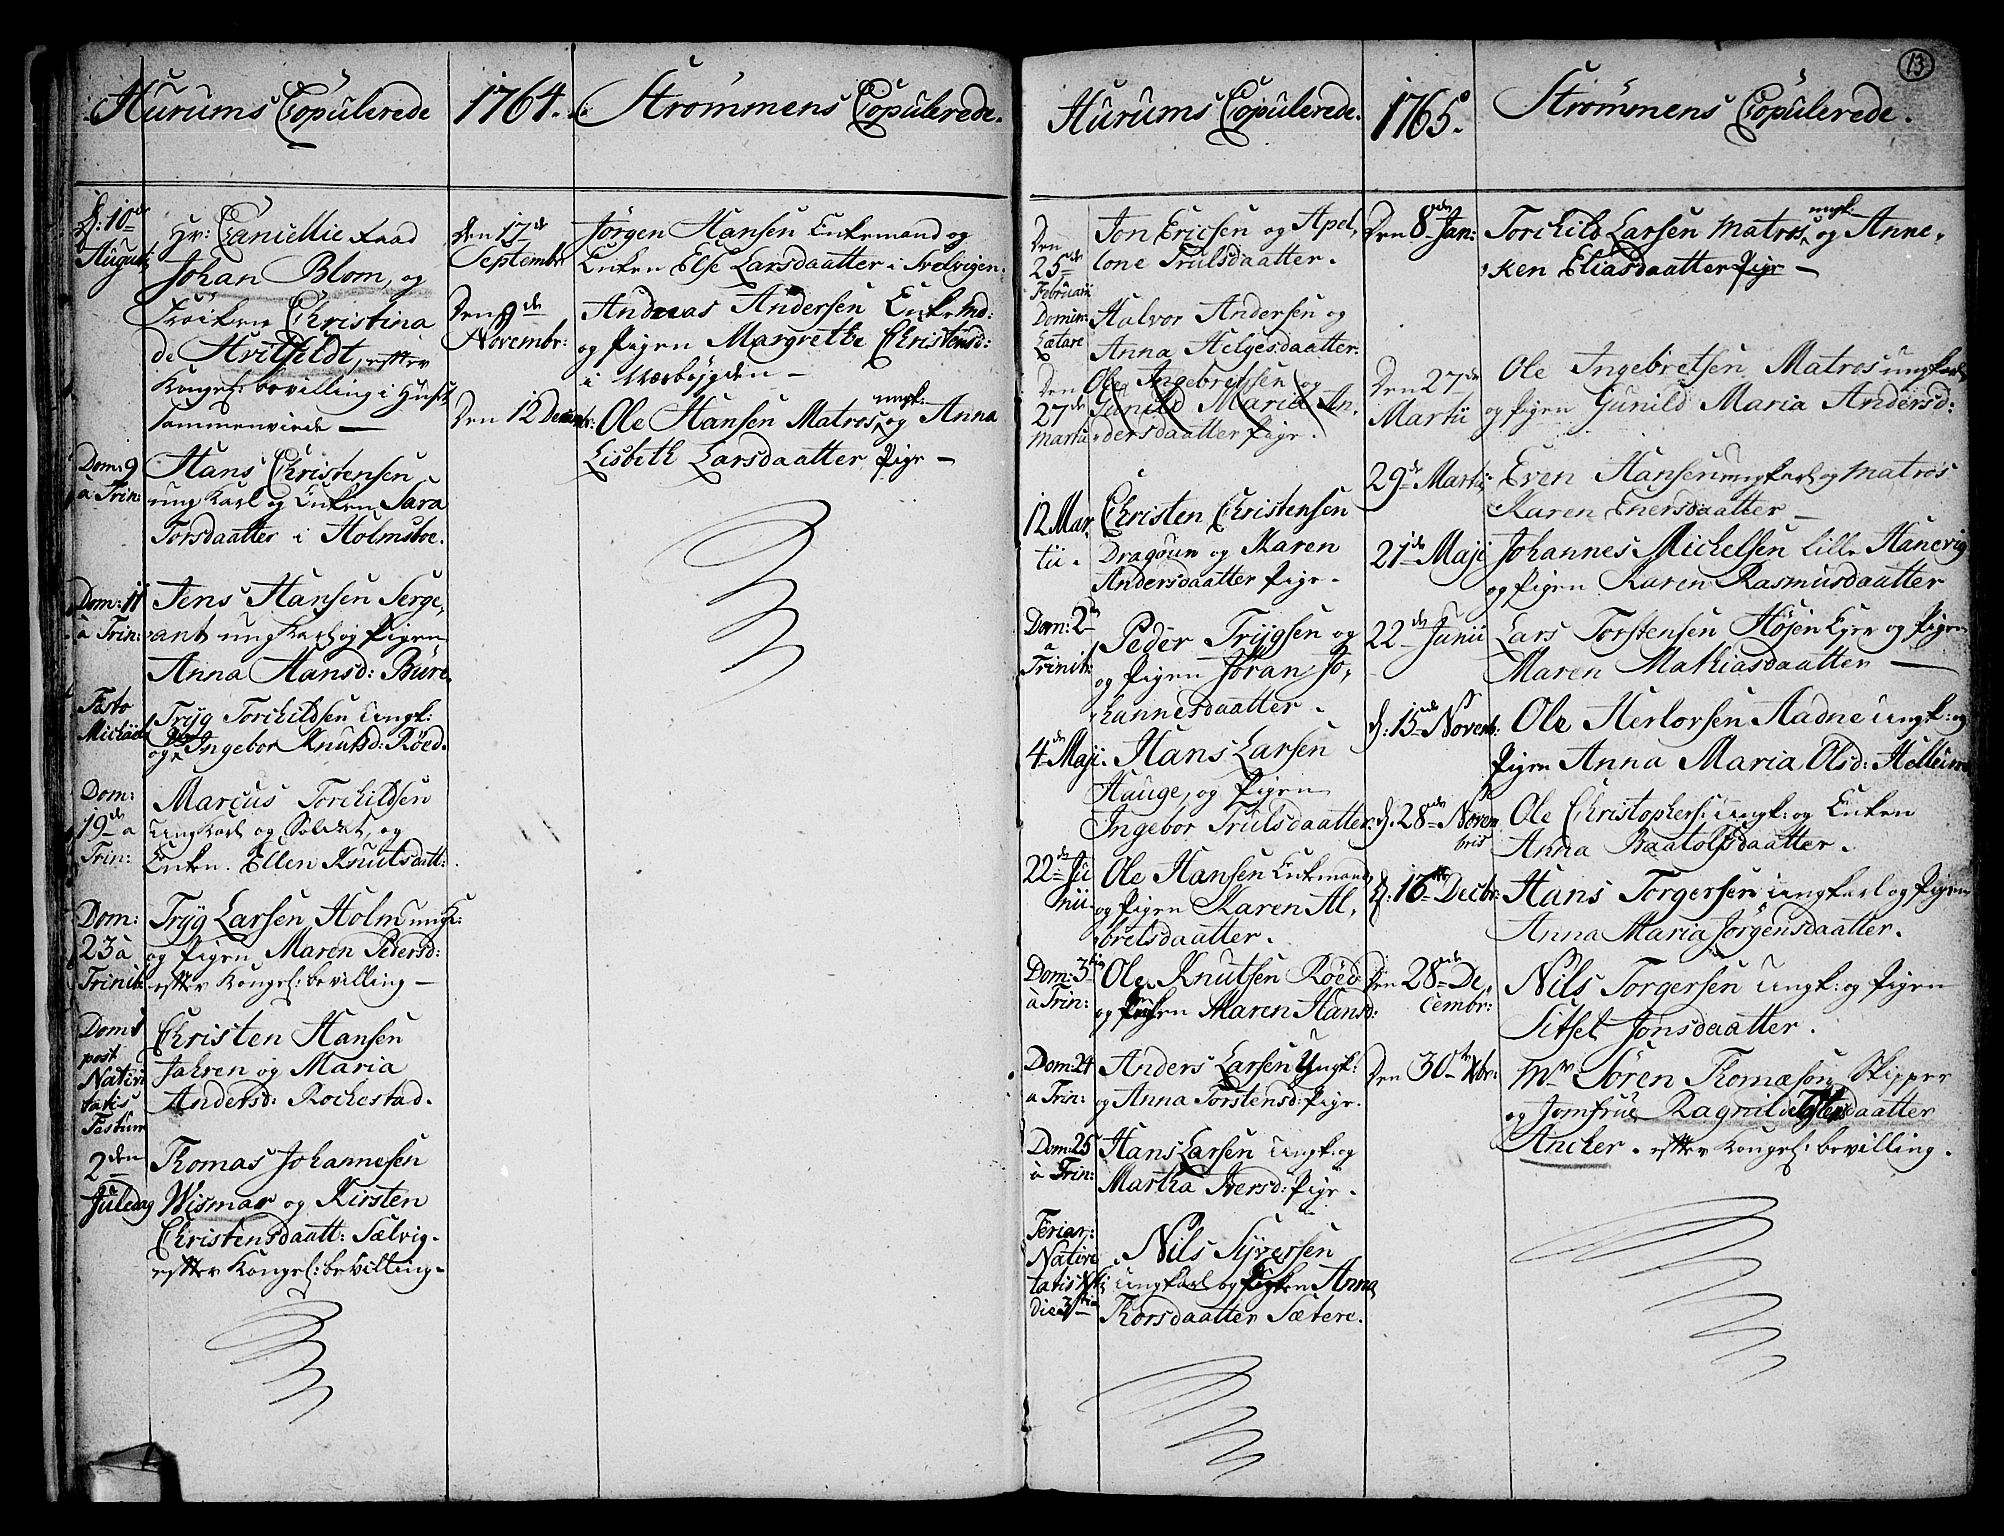 Hurums Copulerede
1764.
Strømmens Copulerede.
D: 10de
Augusti
Hr: Cancellie Raad
Johan Blom, og
Frøiken Christina
de Hvitfeldt, efter
Kongel: bevilling i Huset
sammenviede —
Dom: 9
à Trin:
Hans Christensen
ung Karl og Enken Sara
Torsdaatter i Holmsboe.
Dom: 11
à Trin:
Jens Hansen Serge,
ant ung Karl og Pigen
Anna Hansd: Büre.
Festo
Michäel
Tryg Torchildsen Ungk:
og Ingebor Knutsd: Røed.
Dom:
19de a
Trin:
Marcus Torchildsen
Ungkarl og Soldat, og
Enken. Ellen Knutsdatt:
Dom:
23 à
Trinit:
Tryg Larsen Holm ungk:
og Pigen Maren Pedersd:
efter Kongel: bevilling —
Dom 1
post
Nativi
tatis
Festum
Christen Hansen
Jahren og Maria
Andersd: Rochestad.
2den
Juledag
Thomas Johannesen
Wismar og Kirsten
Christensdaatt: Sælvig.
efter Kongel: bevilling.
Den 17de
Septembr
Jørgen Hansen Enkemand og
Enken Else Larsdaatter i Svelvigen.
Den 9de
Novembr:
Andreas Andersen Enkemd:
og Pigen Margrethe Christensd:
i Nærbøygden —
Den 12 Decembr:
Ole Hansen Matros ungk: og Anna
Lisbeth Larsdaatter Pige —
13
Hurums Copulerede.
1765.
Strømmens Copulerede.
Den
25de
Februarii
Jon Ericsen og Apel,
lone Trulsdaatter.
Domin:
Lætare
Halvor Andersen og
Anna Helgesdaatter.
Den
27de
Martii
Ole Ingebretsen og
Gunild Maria An,
dersdaatter Pige.
12 Mar,
tii.
Christen Christensen
Dragoun og Maren
Andersdaatter Pige.
Dom: 2
a
Trinit:
Peder Trygsen og
og Pigen Jøran Jo,
hannesdaatter.
4de Maji.
Hans Larsen
Hauge, og Pigen
Ingebor Trulsdaatter.
22de Ju
nii
Ole Hansen Enkemand
og Pigen Karen Al,
bretsdaatter.
Dom: 3tia
à Trin:
Ole Knutsen Røed
og Pigen Maren Hansd:
Dom: 24
a Trin:
Anders Larsen Ungk:
og Anna Torstensd: Pige.
Dom: 25
à Trin:
Hans Larsen Ungk: og
Martha Iversd: Pige.
Feriar:
Nativi
tatis Xsti
die 3tia
Nils Syversen
Ungkarl og Pigen Anna
Thorsdaatter Sætere.
Den 8de Jan:
Torchild Larsen Matros ungk: og Anne,
ken Eliasdaatter Pige —
Den 27de
Martii
Ole Ingebretsen Matros ungkarl
og Pigen Gunild Maria Andersd:
29de Martii
Even Hansen ungkarl og Matros
Karen Enersdaatter —
21de Maji
Johannes Michelsen lille Hanevig
og Pigen Karen Rasmusdaatter
22de Junii
Lars Torstensen Højen Eyer og Pigen
Maren Mathiasdaatter —
D: 15de Novemb:
Ole Herlorsen Aadne Ungk: og
Pigen Anna Maria Olsd: Hellum
D. 28de Novem
bris
Ole Christophers: Ungk: og Enken
Anna Baatolfsdaatter.
D: 16te Decbr:
Hans Torgersen Ungkarl og Pigen
Anna Maria Jørgensdaatter.
Den 28de De,
cembr:
Nils Torgersen Ungk: og Pigen
Sitsel Jonsdaatter.
Den 30te Xbr:
Mr Søren Thomæsøn Skipper
og Jomfrue Ragnild
Ancher. efter Kongel: bevilling.